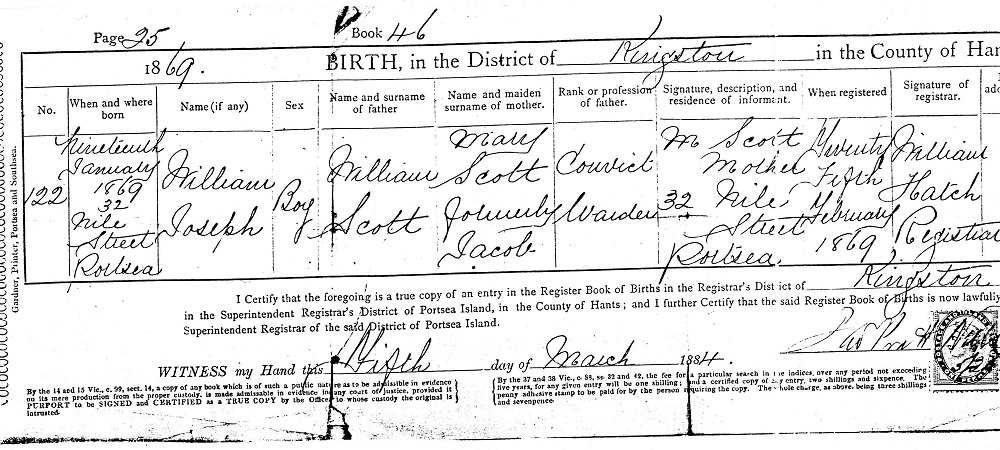 Page 25 Book 46
1869. BIRTH, in the District of Kingston in the County of Han
No. When and where born Name (if any) Sex Name and surname of father Name and maiden surname of mother. Rank or profession of father. Signature, description, and residence of informant. When registered Signature of registrar.
122
Nineteenth
January
1869
32
Nile
Street
Portsea
William
Joseph
Boy
William
Scott
Mary
Scott
formerly
Jacob
Convict
Warder
M Scott
Mother
32 Nile
Street
Portsea
Twenty
Fifth
February
1869
William
Hatch
Registrar
Gardner, Printer, Portsea and Southsea.
I Certify that the foregoing is a true copy of an entry in the Register Book of Births in the Registrar's District of Kingston
in the Superintendent Registrar's District of Portsea Island, in the County of Hants; and I further Certify that the said Register Book of Births is now lawfully
Superintendent Registrar of the said District of Portsea Island.
WITNESS my Hand this Fifth day of March 1884.
By the 14 and 15 Vic., c. 99, sect. 14, a copy of any book which is of such a public nature as to be admissible in evidence
on its mere production from the proper custody, is made admissible in evidence in any court of justice, provided it
PURPORT to be SIGNED and CERTIFIED as a TRUE COPY by the Officer to whose custody the original is
intrusted.
By the 37 and 38 Vic., c. 88, ss. 32 and 42, the fee for a particular search in the indices, over any period not exceeding
five years, for any given entry will be one shilling; and a certified copy of any entry, two shillings and sixpence. The
penny adhesive stamp to be paid for by the person requiring the copy. The whole charge, as above, being three shillings
and sevenpence.